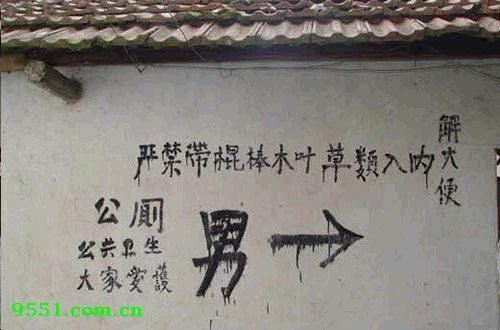 严禁带棍棒木叶草類入内
解大便
公厕
公共卫生
大家爱護
男
9551.com.cn